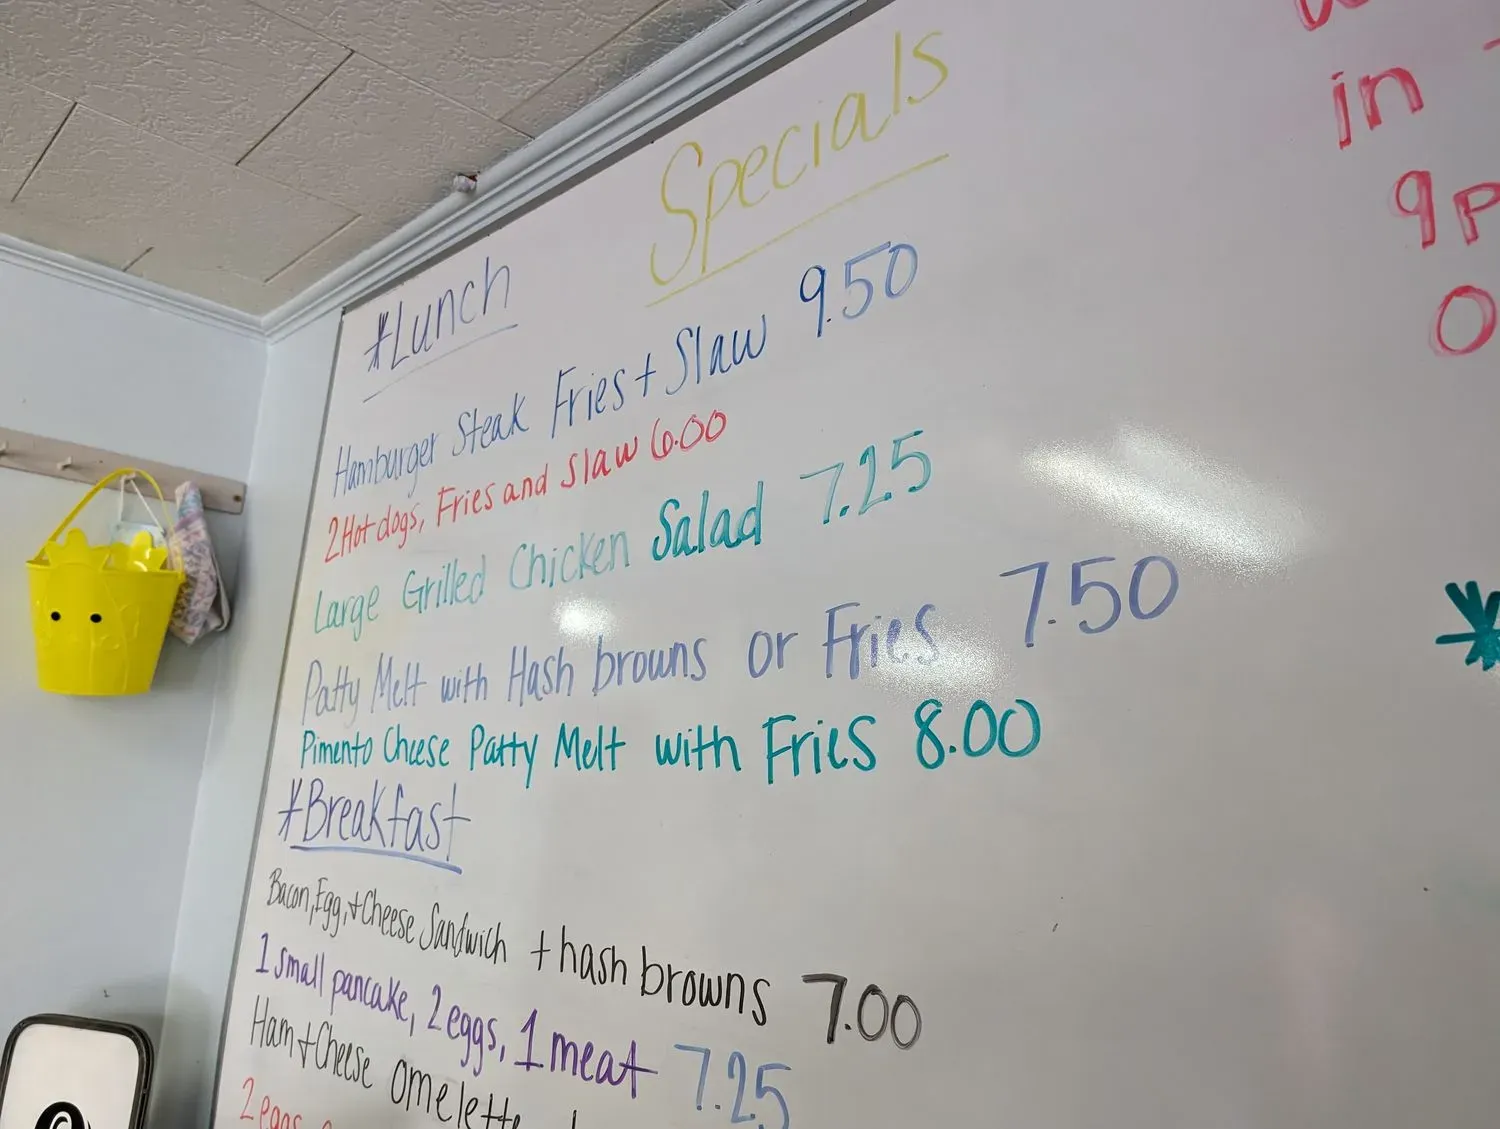 Specials
*Lunch
Hamburger Steak Fries + Slaw 9.50
2 Hot dogs, Fries and Slaw 6.00
Large Grilled Chicken Salad 7.25
Patty Melt with Hash browns or Fries 7.50
Pimento Cheese Patty Melt with Fries 8.00
*Breakfast
Bacon, Egg, + Cheese Sandwich + hash browns 7.00
1 small pancake, 2 eggs, 1 meat 7.25
Ham + Cheese omelette
2 eggs
in
9p